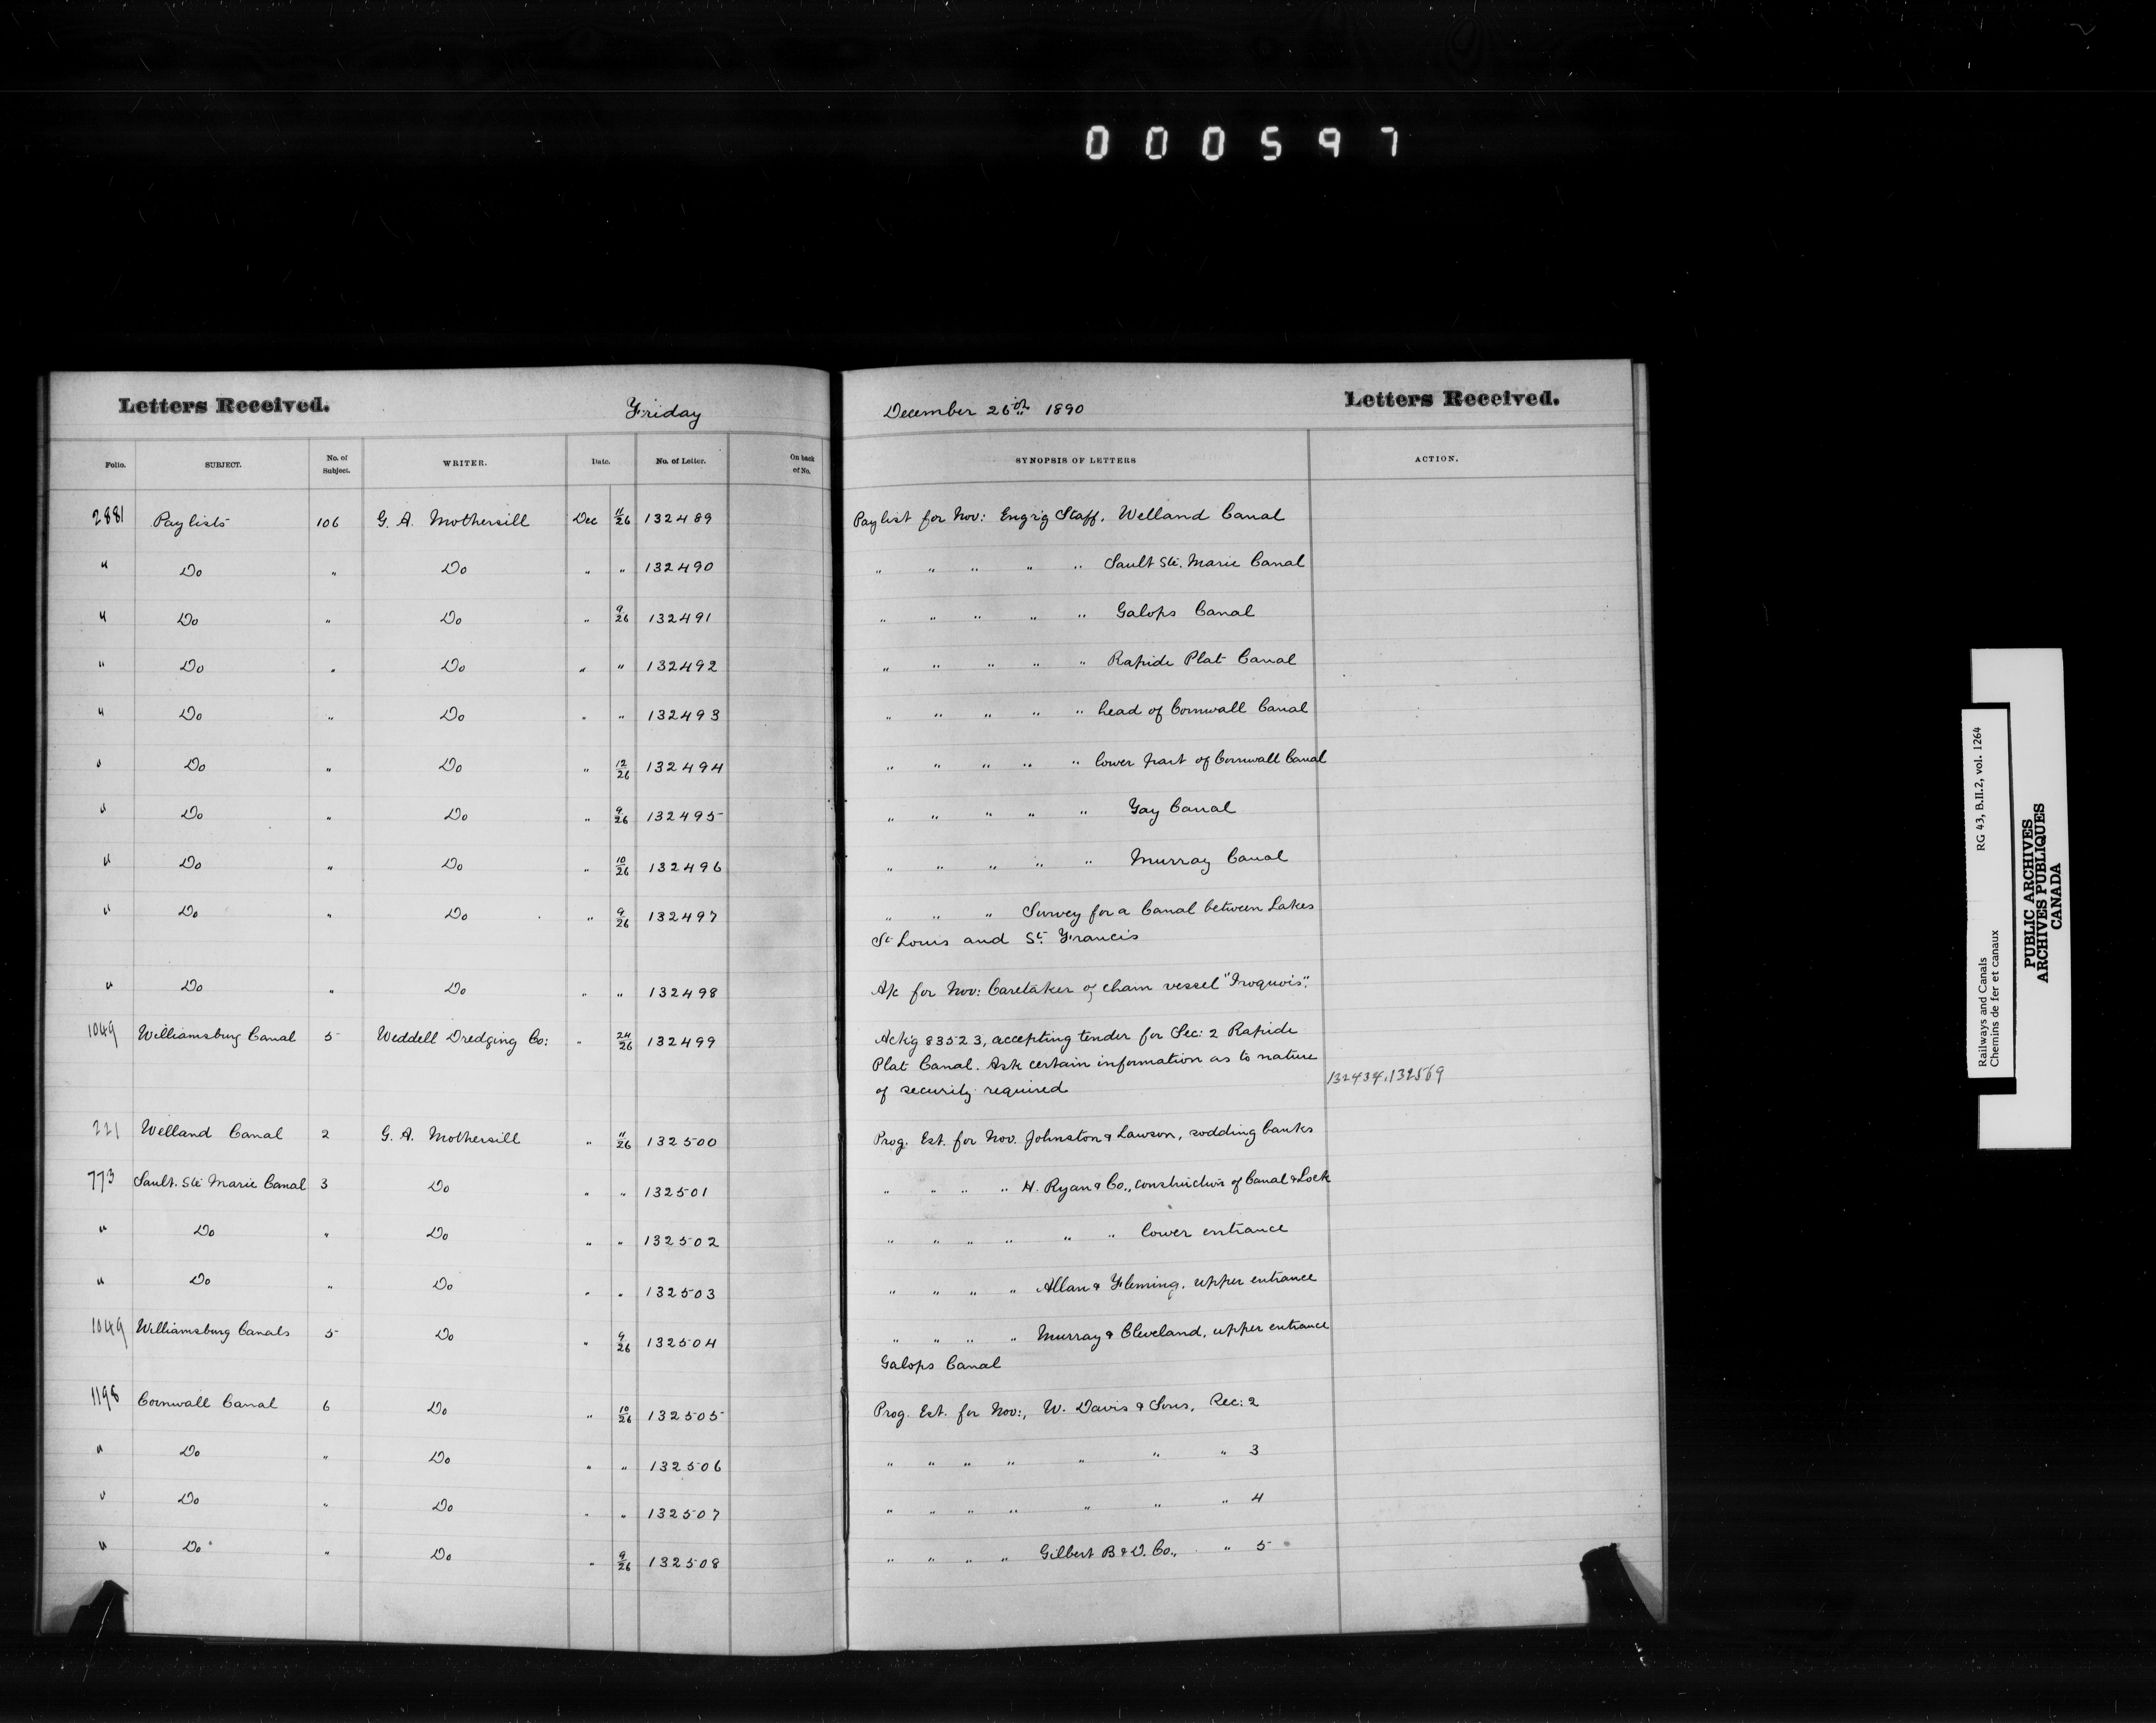 000597
Letters Received. Friday December 26th 1890 Letters Received.
Folio. SUBJECT. No. of Subject. WRITER. Date. No. of Letter. On back of No. SYNOPSIS OF LETTERS ACTION.
2881 Paylists 106 G. A. Mothersill Dec 11/26 132489 Paylist for Nov: Eng'r'g Staff. Welland Canal
" Do " Do " " 132490 " " " " " Sault Ste. Marie Canal
" Do " Do " 9/26 132491 " " " " " Galops Canal
" Do " Do " " 132492 " " " " " Rapide Plat Canal
" Do " Do " " 132493 " " " " " head of Cornwall Canal
" Do " Do " 12/26 132494 " " " " " lower part of Cornwall Canal
" Do " Do " 9/26 132495 " " " " " Tay Canal
" Do " Do " 10/26 132496 " " " " " Murray Canal
" Do " Do " 9/26 132497 " " " Survey for a Canal between Lakes
St Louis and St. Francis
" Do " Do " " 132498 A/c for Nov: Caretaker of cham vessel "Iroquois".
1049 Williamsburg Canal 5 Weddell Dredging Co: " 24/26 132499 Ack'g 83523, accepting tender for Sec: 2 Rapide
Plat Canal. Ask certain information as to nature
of security required 132434, 132569
221 Welland Canal 2 G. A. Mothersill " 11/26 132500 Prog. Est. for Nov. Johnston & Lawson, sodding banks
773 Sault. Ste Marie Canal 3 Do " " 132501 " " " " H. Ryan & Co., construction of Canal & Lock
" Do " Do " " 132502 " " " " " " lower entrance
" Do " Do " " 132503 " " " " Allan & Fleming, upper entrance
1049 Williamsburg Canals 5 Do " 9/26 132504 " " " " Murray & Cleveland, upper entrance
Galops Canal
1198 Cornwall Canal 6 Do " 10/26 132505 Prog. Est. for Nov:, W. Davis & Sons, Sec: 2
" Do " Do " " 132506 " " " " " " " 3
" Do " Do " " 132507 " " " " " " " 4
" Do " Do " 9/26 132508 " " " " Gilbert B & D. Co., " 5
Railways and Canals RG 43, B.II.2, vol. 1264
Chemins de fer et canaux
PUBLIC ARCHIVES
ARCHIVES PUBLIQUES
CANADA